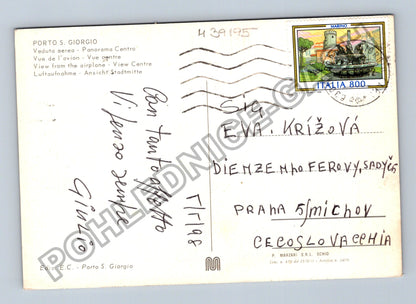 4 39195
PORTO S. GIORGIO
Veduta aerea - Panorama Centro
Vue de l'avion - Vue centre
View from the airplane - View Centre
Luftaufnahme - Ansicht Stadtmitte
MARINO
ITALIA 800
Con tanto affetto
Ti penso sempre
Giulio
5/5/98
Sig
EVA KŘÍŽOVÁ
DIENZENHOFEROVY, SADY
PRAHA 5/MICHOV
CECOSLOVACCHIA
E.C. - Porto S. Giorgio
POHLEDNICE